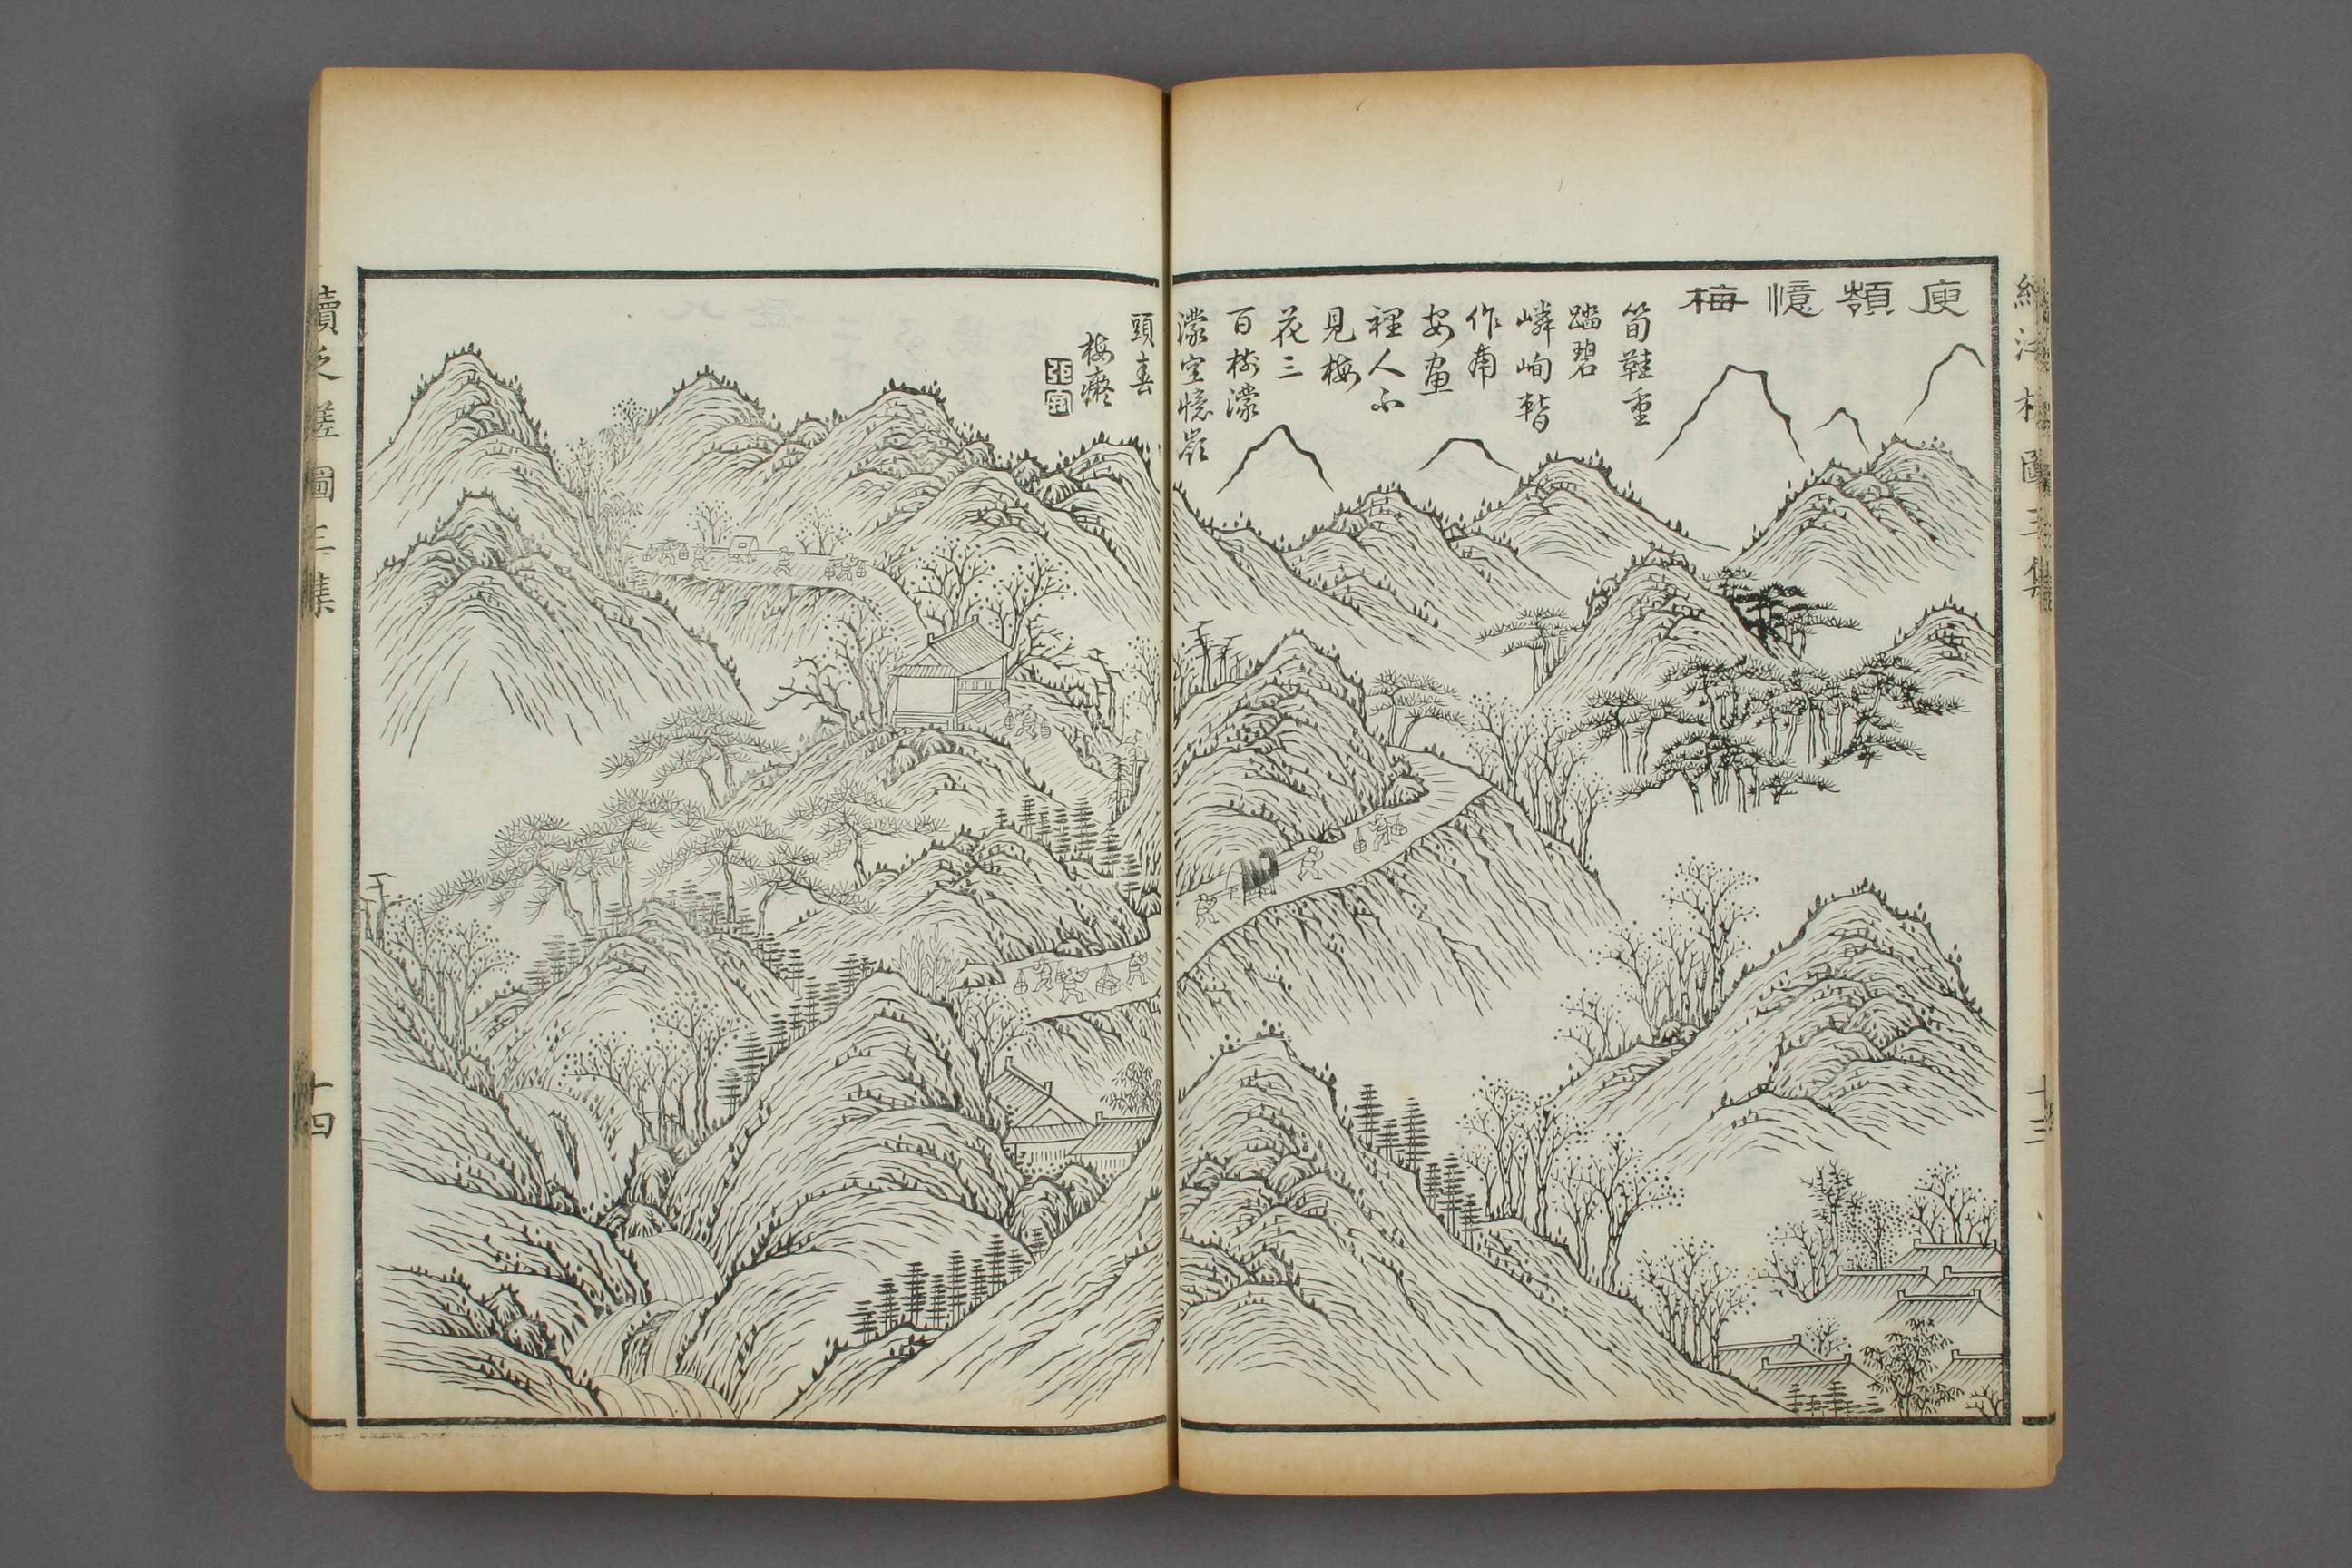 續泛槎圖三集
十三
庾嶺憶梅
筍鞋重
踏碧
嶙峋暫
作南
安畫
裡人不
見梅
花三
百樹濛
濛空憶嶺
頭春
梅癡
續泛槎圖三集
十四